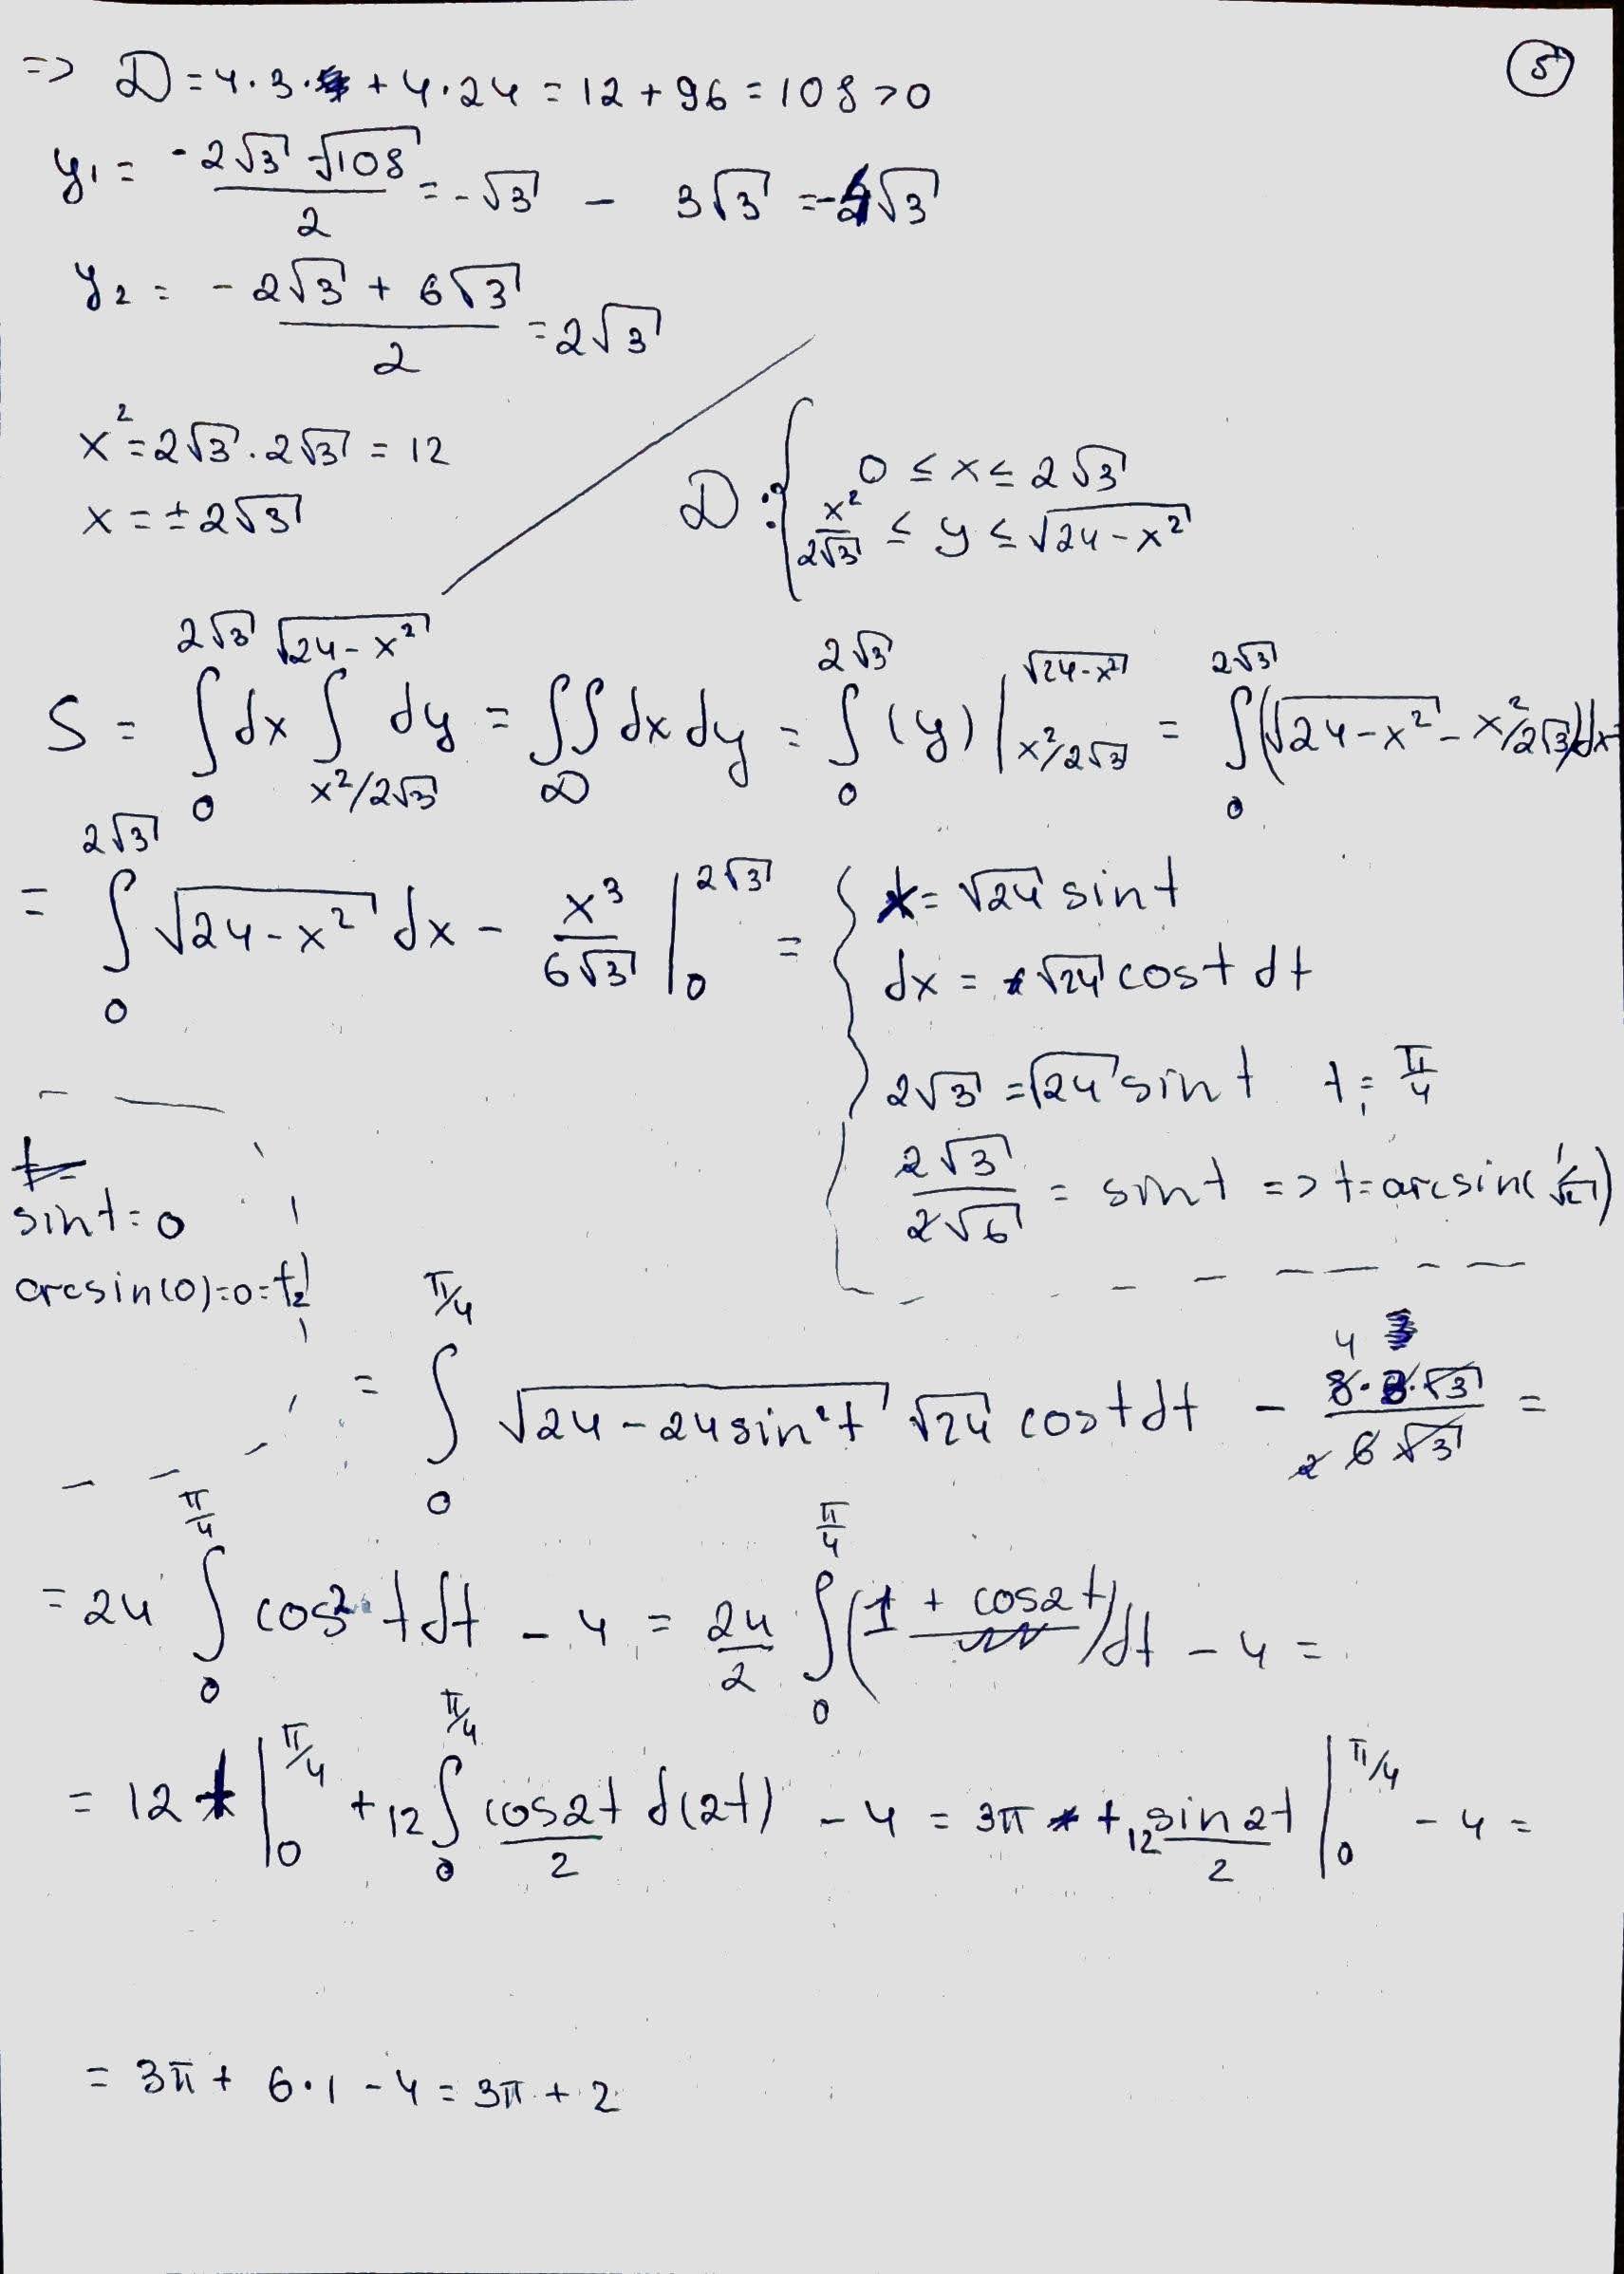 ⑤
=> D = 4·3· + 4·24 = 12 + 96 = 108 > 0
y₁ = (-2√3 - √108)/2 = -√3 - 3√3 = -4√3
y₂ = (-2√3 + 6√3)/2 = 2√3
x² = 2√3 · 2√3 = 12
x = ±2√3
D: { 0 ≤ x ≤ 2√3
x²/2√3 ≤ y ≤ √(24-x²)
S = ∫₀^{2√3} dx ∫_{x²/2√3}^{√(24-x²)} dy = ∬_D dx dy = ∫₀^{2√3} (y) |_{x²/2√3}^{√(24-x²)} = ∫₀^{2√3} (√(24-x²) - x²/2√3) dx =
= ∫₀^{2√3} √(24-x²) dx - x³/(6√3) |₀^{2√3} = { x = √24 sin t
dx = √24 cos t dt
2√3 = √24 sin t t₁ = π/4
2√3/2√6 = sin t => t = arcsin(1/√2)
t =
sin t = 0
arcsin(0) = 0 = t₂
= ∫₀^{π/4} √(24 - 24 sin²t) √24 cos t dt - (8·3·√3)/(6√3) 4 2 =
= 24 ∫₀^{π/4} cos² t dt - 4 = 24/2 ∫₀^{π/4} (1 + cos 2t) dt - 4 =
= 12 t |₀^{π/4} + 12 ∫₀^{π/4} (cos 2t)/2 d(2t) - 4 = 3π + 12 (sin 2t)/2 |₀^{π/4} - 4 =
= 3π + 6·1 - 4 = 3π + 2